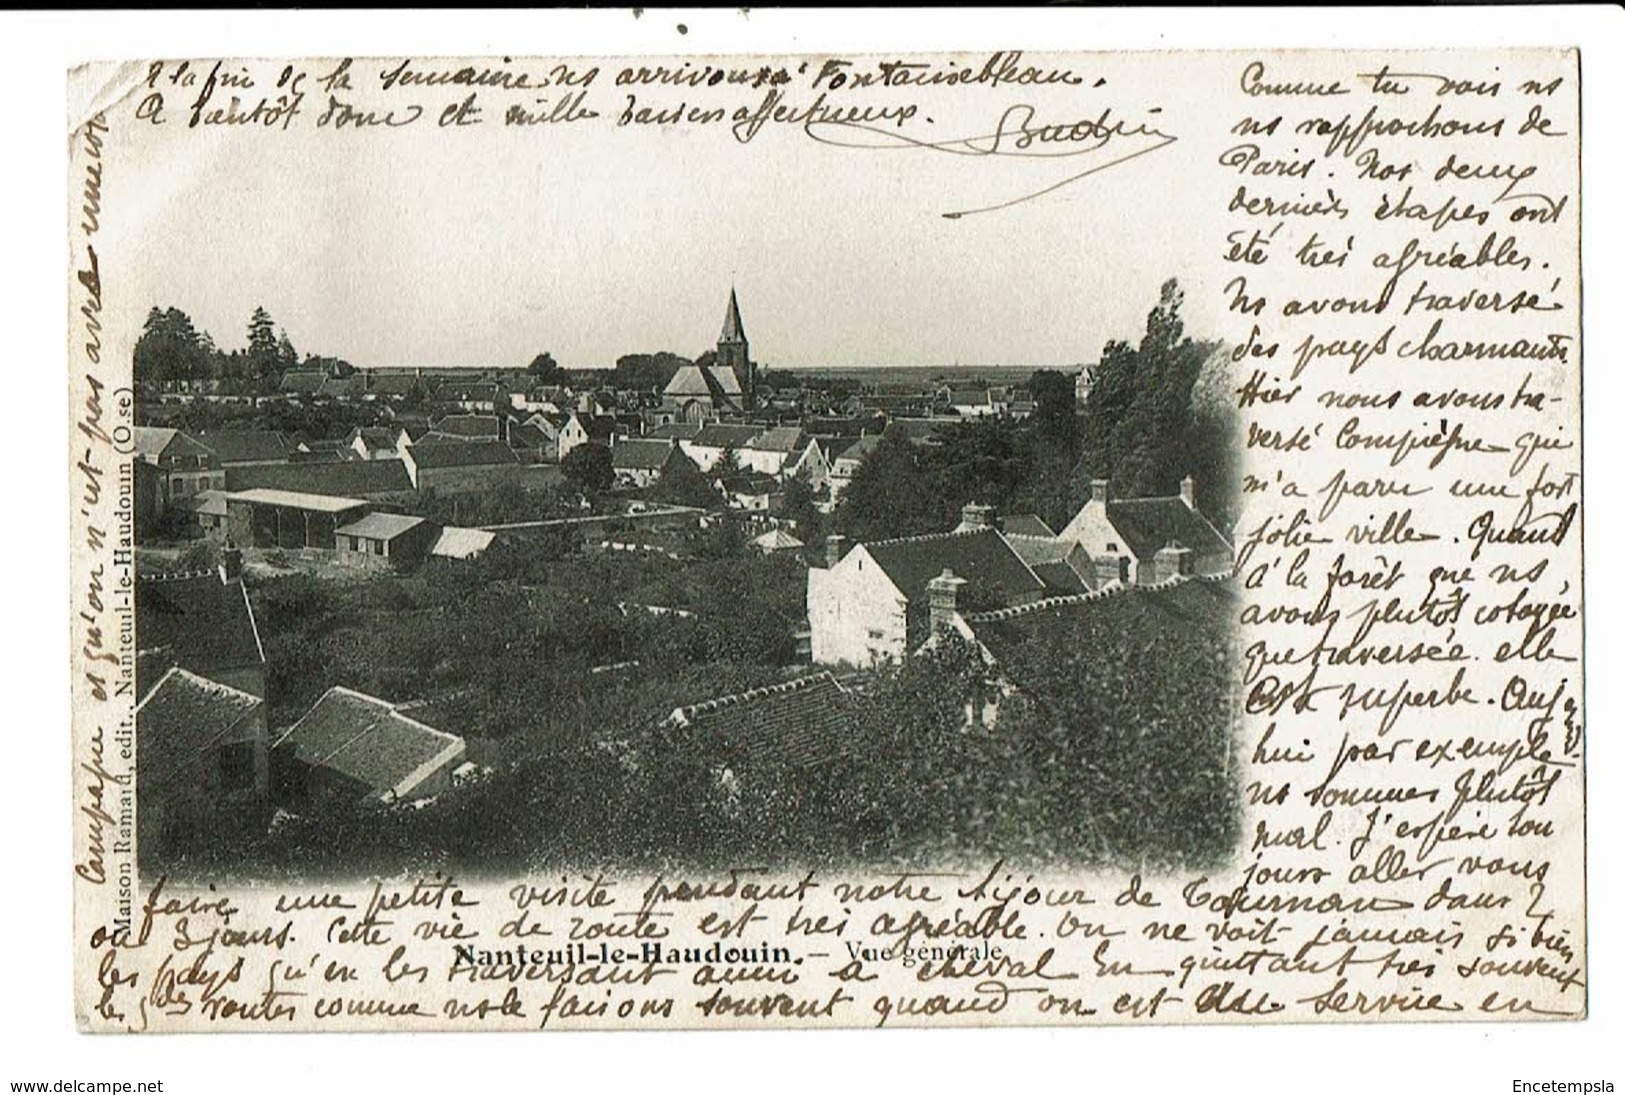 Comme tu vois ns
ns rapprochons de
Paris. Nos deux
dernières étapes ont
été très agréables.
Ns avons traversé
des pays charmants.
Hier nous avons tra-
versé Compiègne qui
m'a paru une fort
jolie ville. Quand
à la forêt que ns
avons plutôt cotoyée
que traversée elle
est superbe. Aujourd
hui par exemple
ns sommes plutôt
mal. J'espère tou
jours aller vous
faire une petite visite pendant notre séjour de Tournan dans 2
ou 3 jours. Cette vie de route est très agréable. On ne voit jamais si bien
les pays qu'en les traversant ainsi à cheval En quittant très souvent
les gdes routes comme ns le faisons souvent quand on est de service en
Campagne et qu'on n'est pas avec
A la fin de la semaine ns arrivons à Fontainebleau.
A bientôt donc et mille baisers affectueux.
Nanteuil-le-Haudouin. — Vue générale
Maison Ramaud, edit., Nanteuil-le-Haudouin (Oise)
www.delcampe.net
Encetempsla